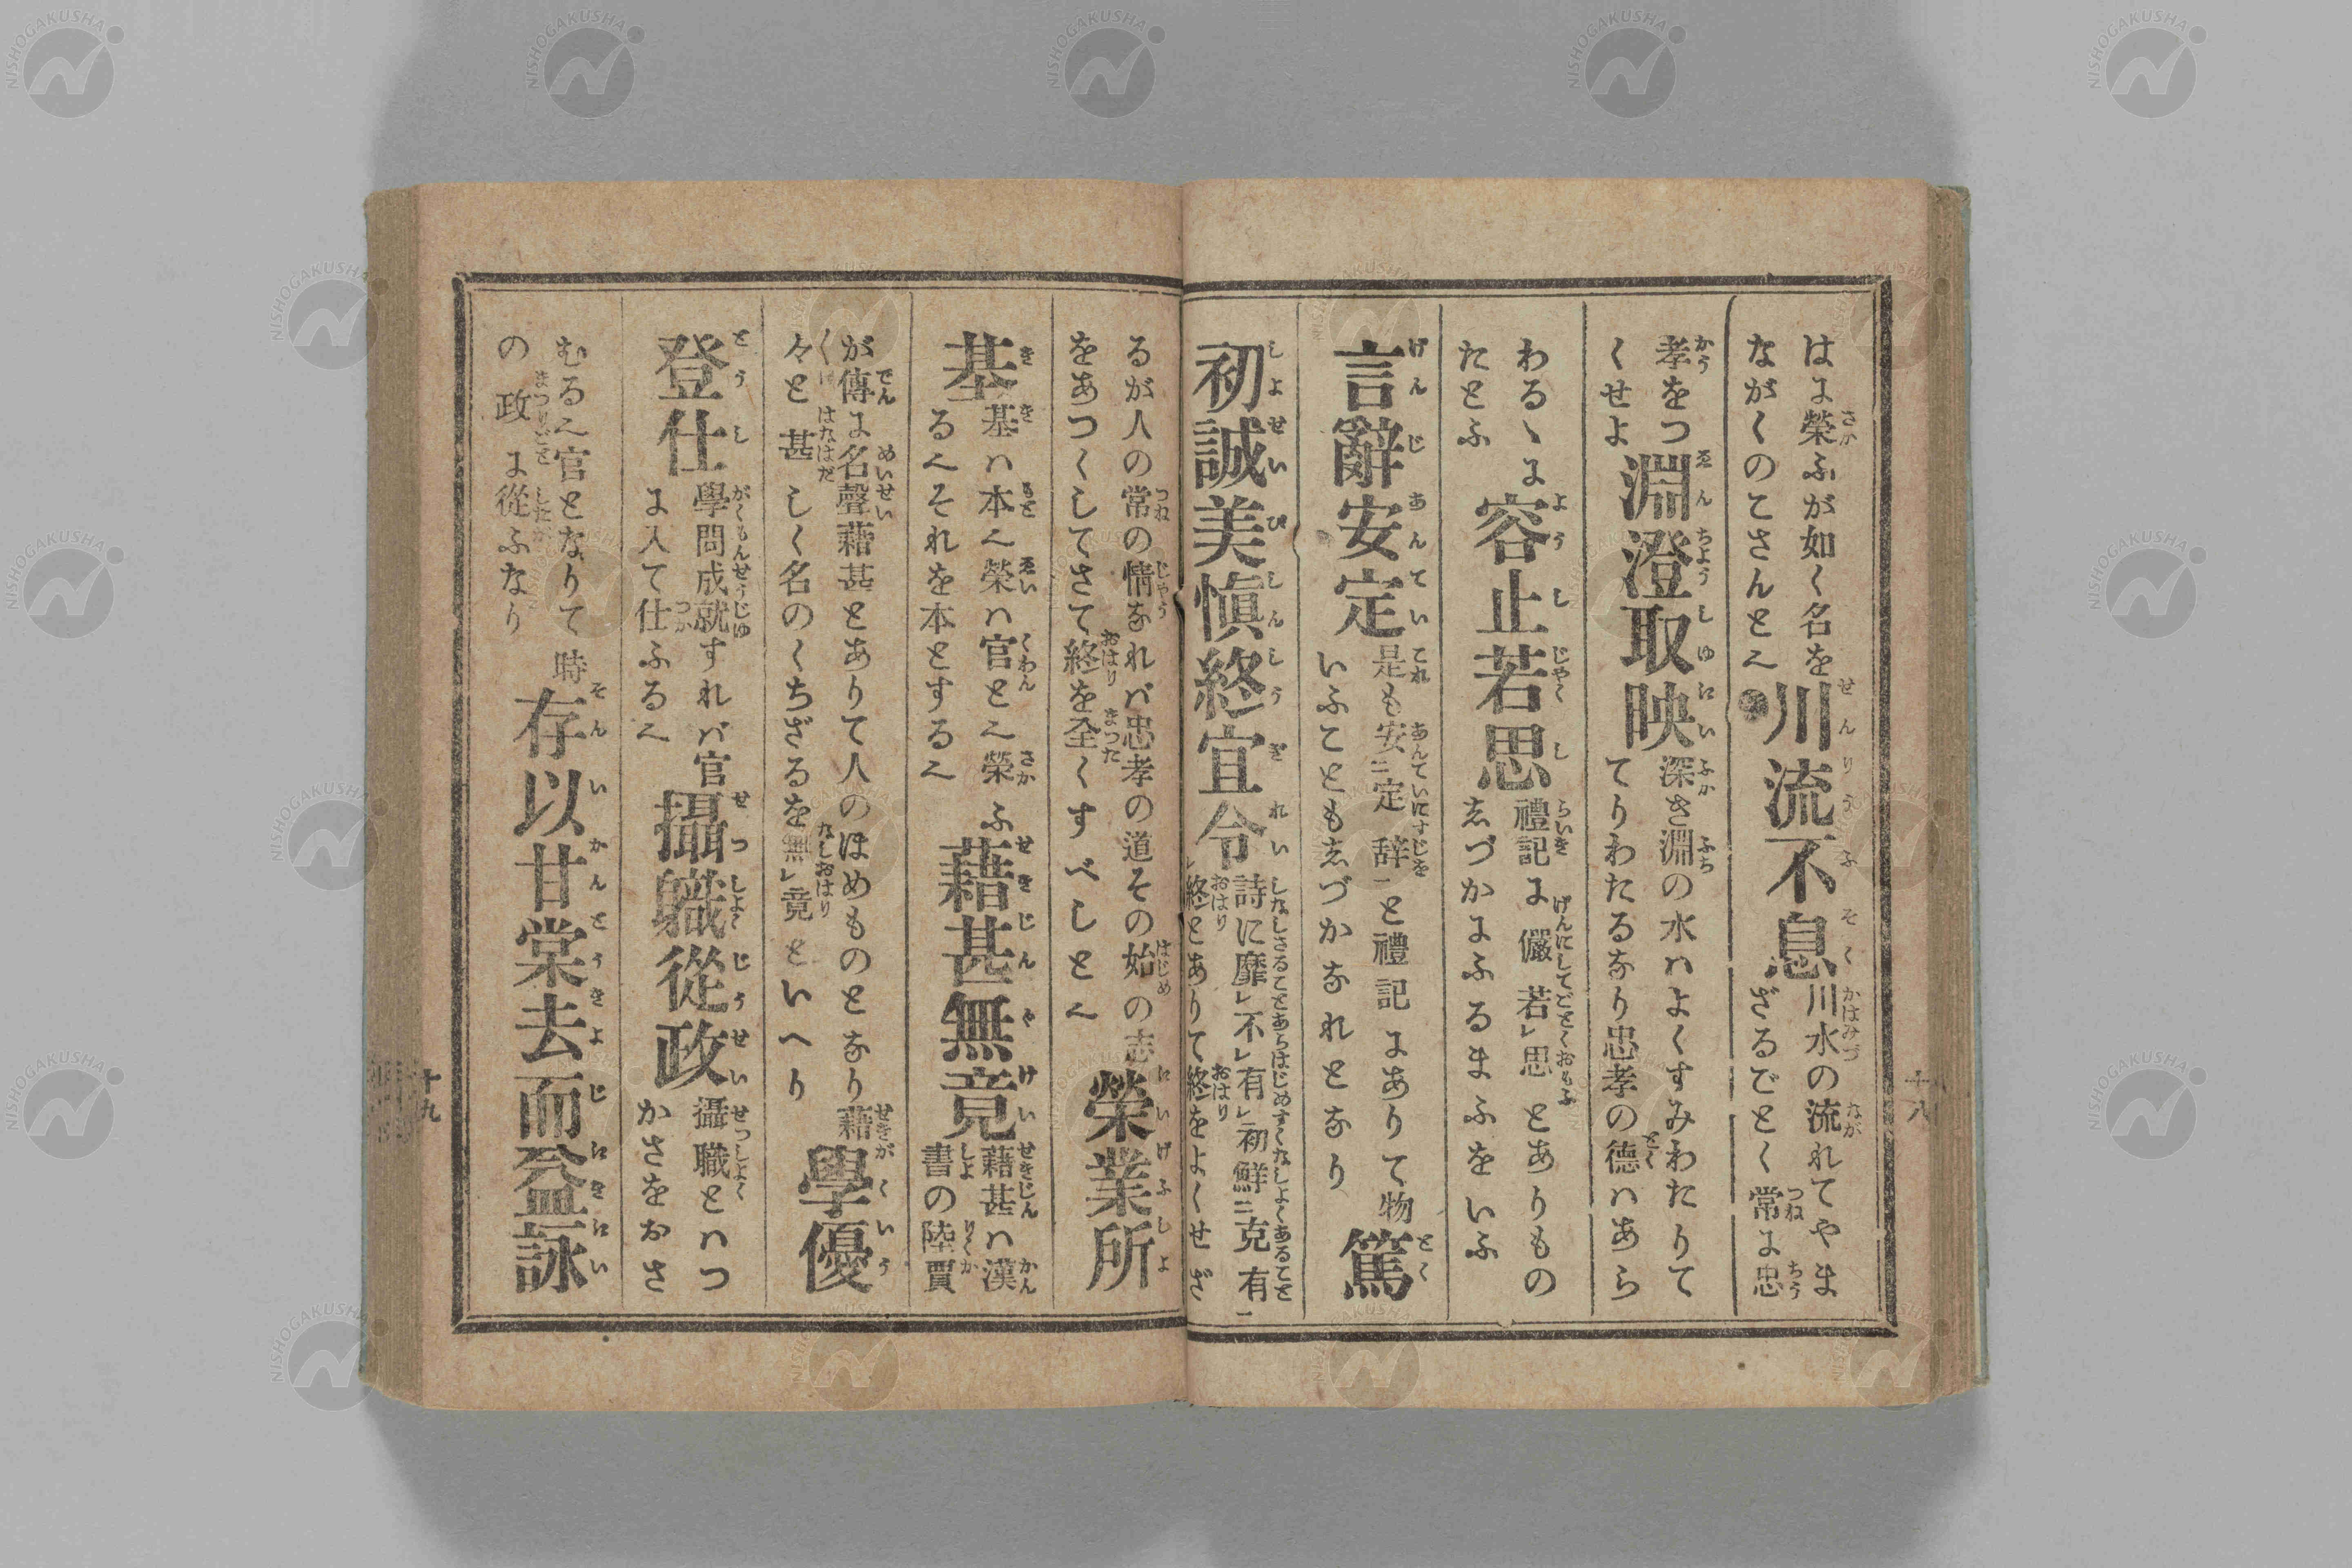 はま榮ふが如く名を
ながくのこさんとへ
川流不息
川水の流れてやま
ざるごとく常よ忠
孝をつ
くせよ
淵澄取映
深き淵の水ハよくすみわたりて
てりわたるなり忠孝の德ハあら
わるゝよ
たとふ
容止若思
禮記よ儼若レ思とありもの
志づかよふるまふをいふ
言辭安定
是も安二定辞一と禮記よありて物
いふこともしづかなれとなり
篤
初誠美愼終宜令
詩に靡レ不レ有レ初鮮二克有一
終とありて終をよくせざ
るが人の常の情なれバ忠孝の道その始の志
をあつくしてさて終を全くすべしとへ
榮業所
基
基ハ本へ榮ハ官とへ榮ふ
るへそれを本とするへ
藉甚無竟
藉甚ハ漢
書の陸賈
が傳よ名聲藉甚とありて人のほめものとなり藉
々と甚しく名のくちざるを無レ竟といへり
學優
登仕
學問成就すれバ官
よ入て仕ふるへ
攝職從政
攝職とハつ
かさをおさ
むるへ官となりて時
の政よ從ふなり
存以甘棠去而益詠
十八
十九
NISHOGAKUSHA